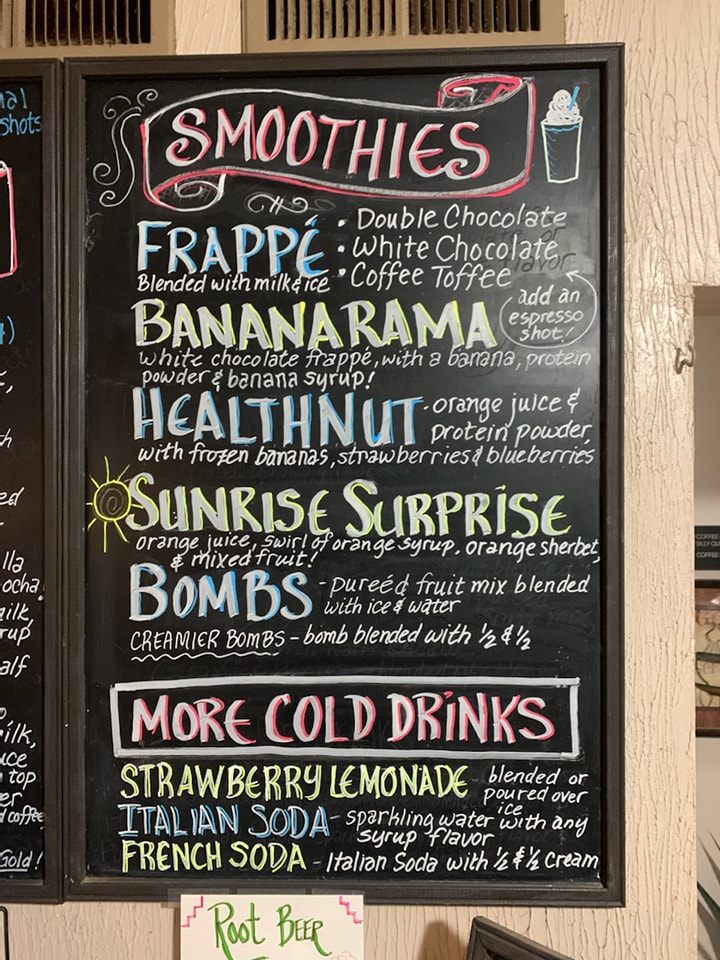 SMOOTHIES
FRAPPÉ
Blended with milk & ice
• Double Chocolate
• White Chocolate
• Coffee Toffee
add an
espresso
shot!
BANANARAMA
white chocolate frappé, with a banana, protein
powder & banana syrup!
HEALTHNUT - orange juice &
protein powder,
with frozen bananas, strawberries & blueberries
SUNRISE SURPRISE
orange juice, swirl of orange syrup, orange sherbet,
& mixed fruit!
BOMBS - pureéd fruit mix blended
with ice & water
CREAMIER BOMBS - bomb blended with ½ & ½
MORE COLD DRINKS
STRAWBERRY LEMONADE - blended or
poured over
ice
ITALIAN SODA - sparkling water with any
syrup flavor
FRENCH SODA - Italian Soda with ½ & ½ cream
ROOT BEER
shots
lla
milk,
alf
top
coffee
Gold!
COFFEE